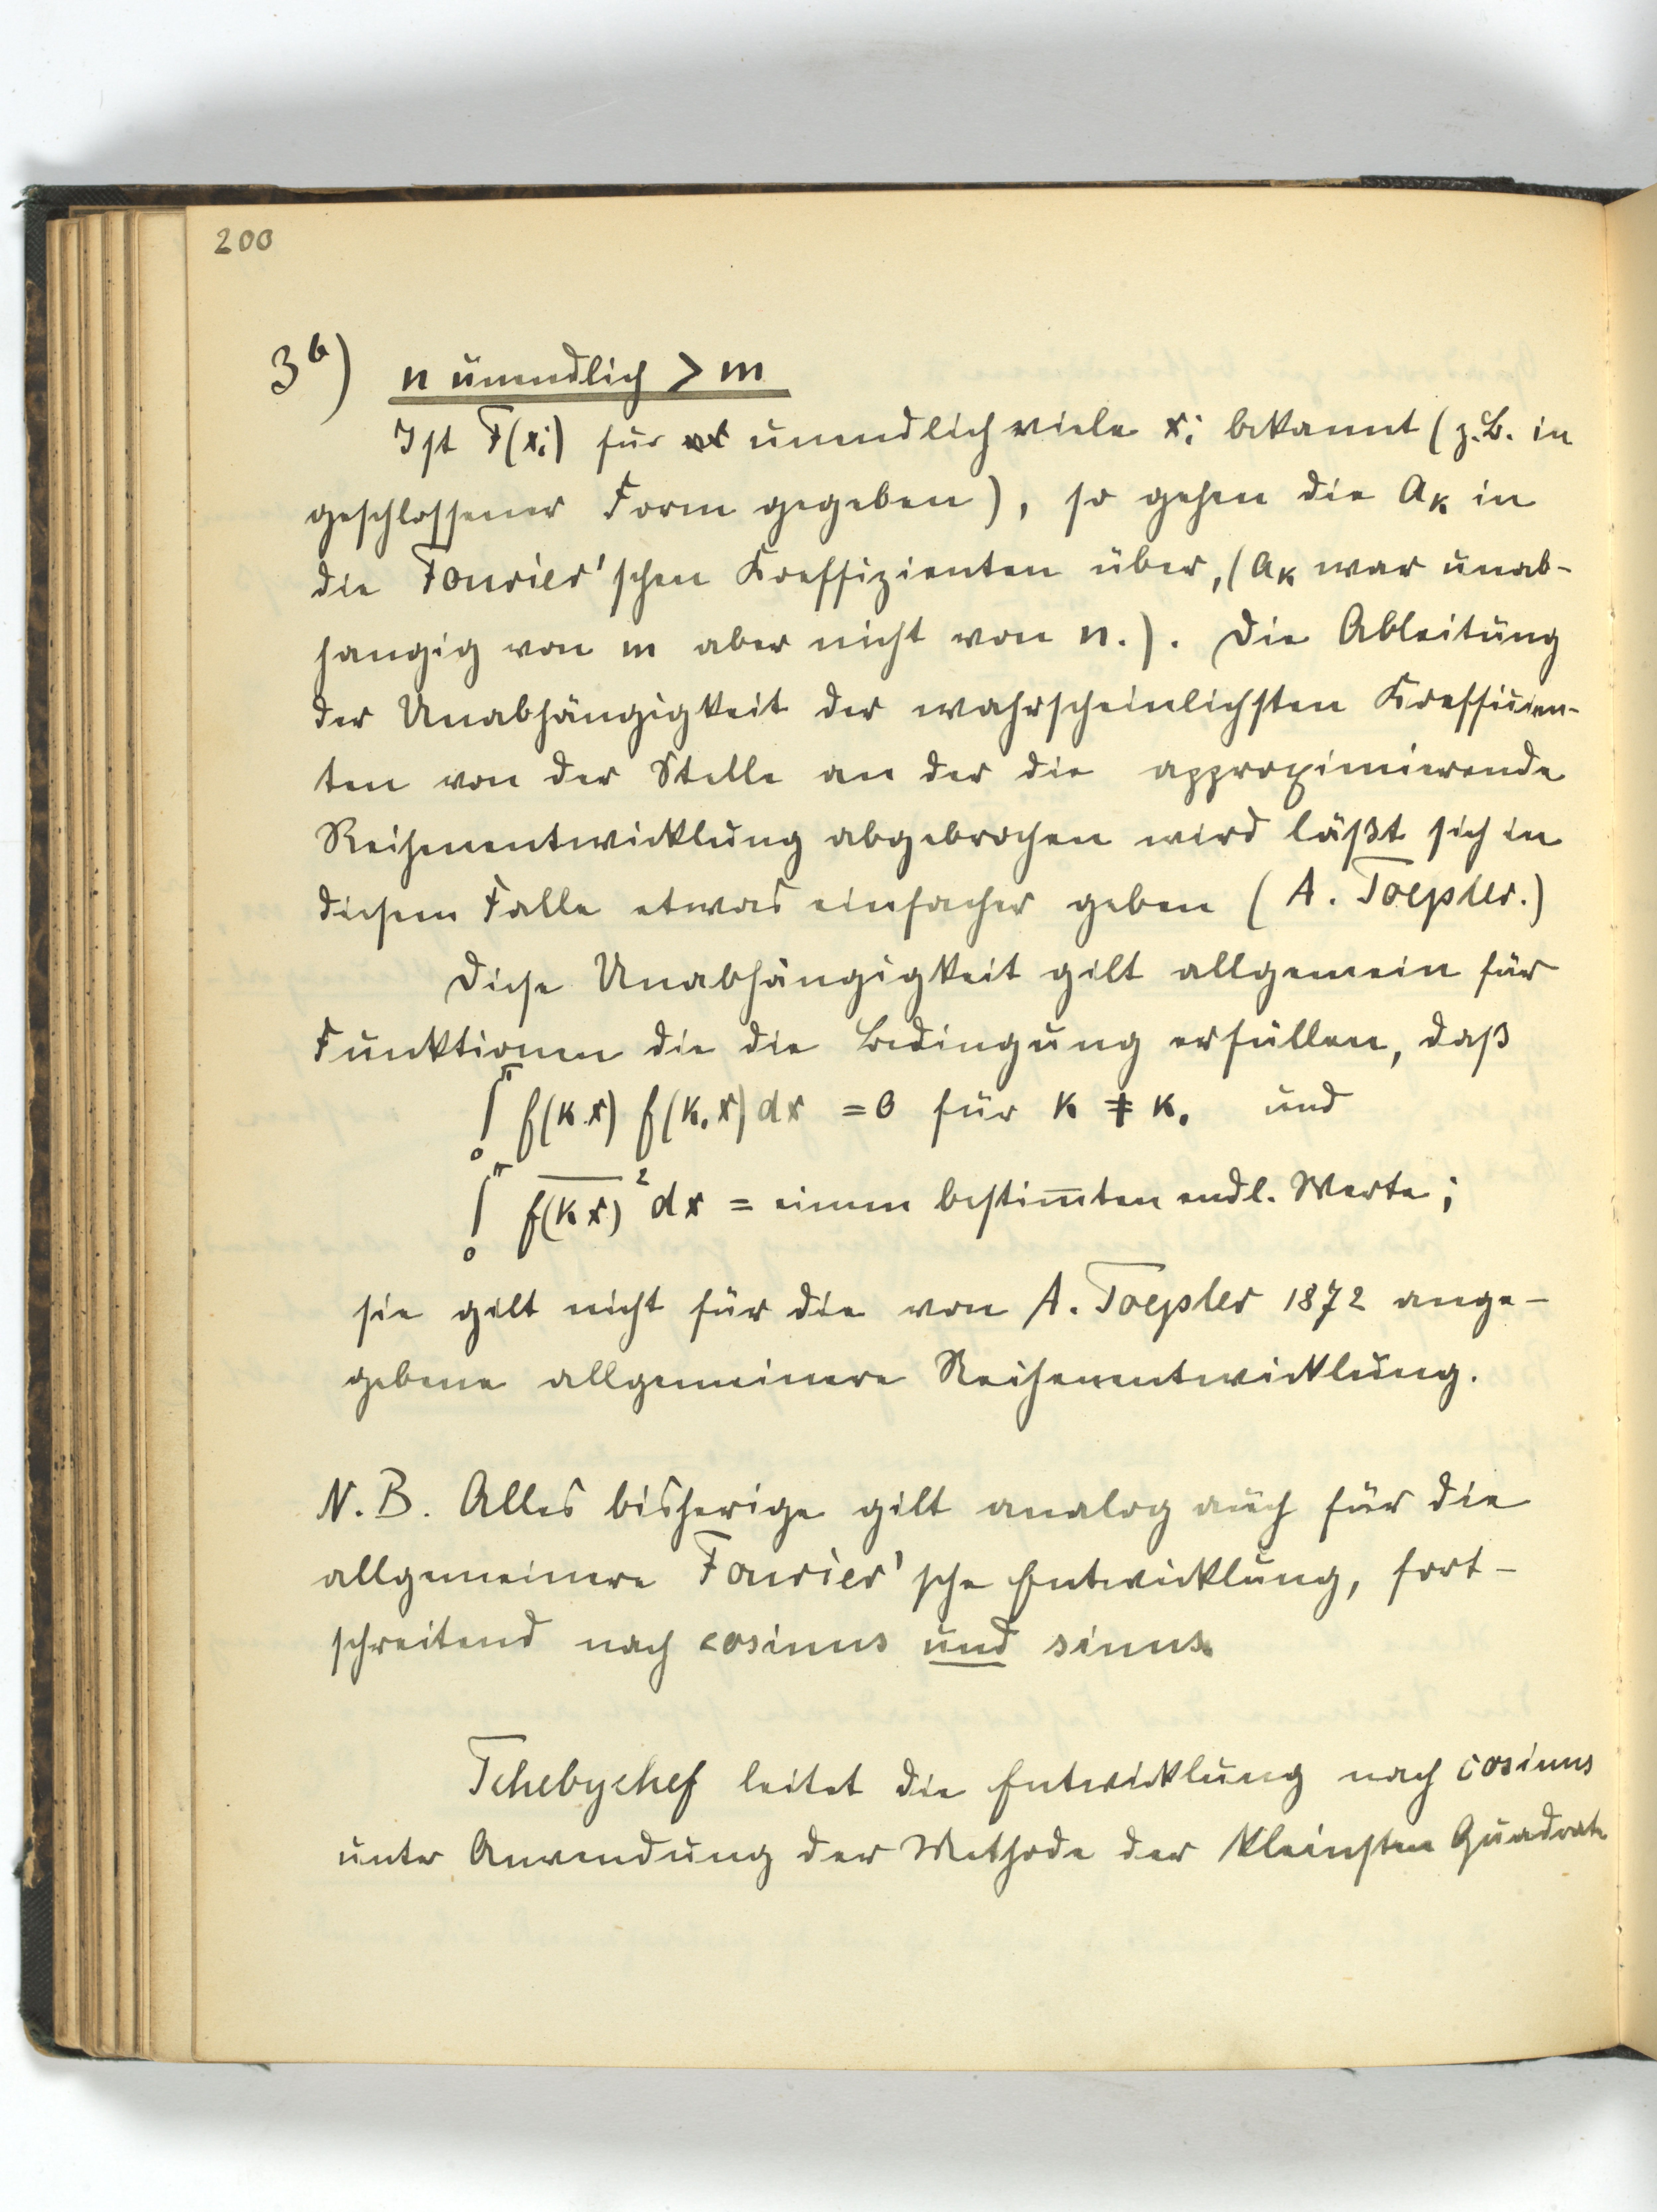 200
3b) n unendlich > m
Ist F(xi) für unendlich viele xi bekannt (z.B. in
geschlossener Form gegeben), so gehen die aK in
die Fourier'schen Koeffizienten über, (aK war unab-
hangig von m aber nicht von n.). Die Ableitung
der Unabhängigkeit der wahrscheinlichsten Koeffizien-
ten von der Stelle an der die approximierende
Reihenentwicklung abgebrochen wird läßt sich in
diesem Falle etwas einfacher geben (A. Toepler.)
Diese Unabhängigkeit gilt allgemein für
Funktionen die die Bedingung erfüllen, daß
∫₀^π f(K x) f(K, x) dx = 0 für K ≠ K, und
∫₀^π \overline{f(K x)}² dx = einem bestim̅ten endl. Werte;
sie gilt nicht für die von A. Toepler 1872 ange-
gebene allgemeinere Reihenentwicklung.
N.B. Alles bisherige gilt analog auch für die
allgemeinere Fourier'sche Entwicklung, fort-
schreitend nach cosinus und sinus.
Tchebychef leitet die Entwicklung nach cosinus
unter Anwendung der Methode der kleinsten Quadrate